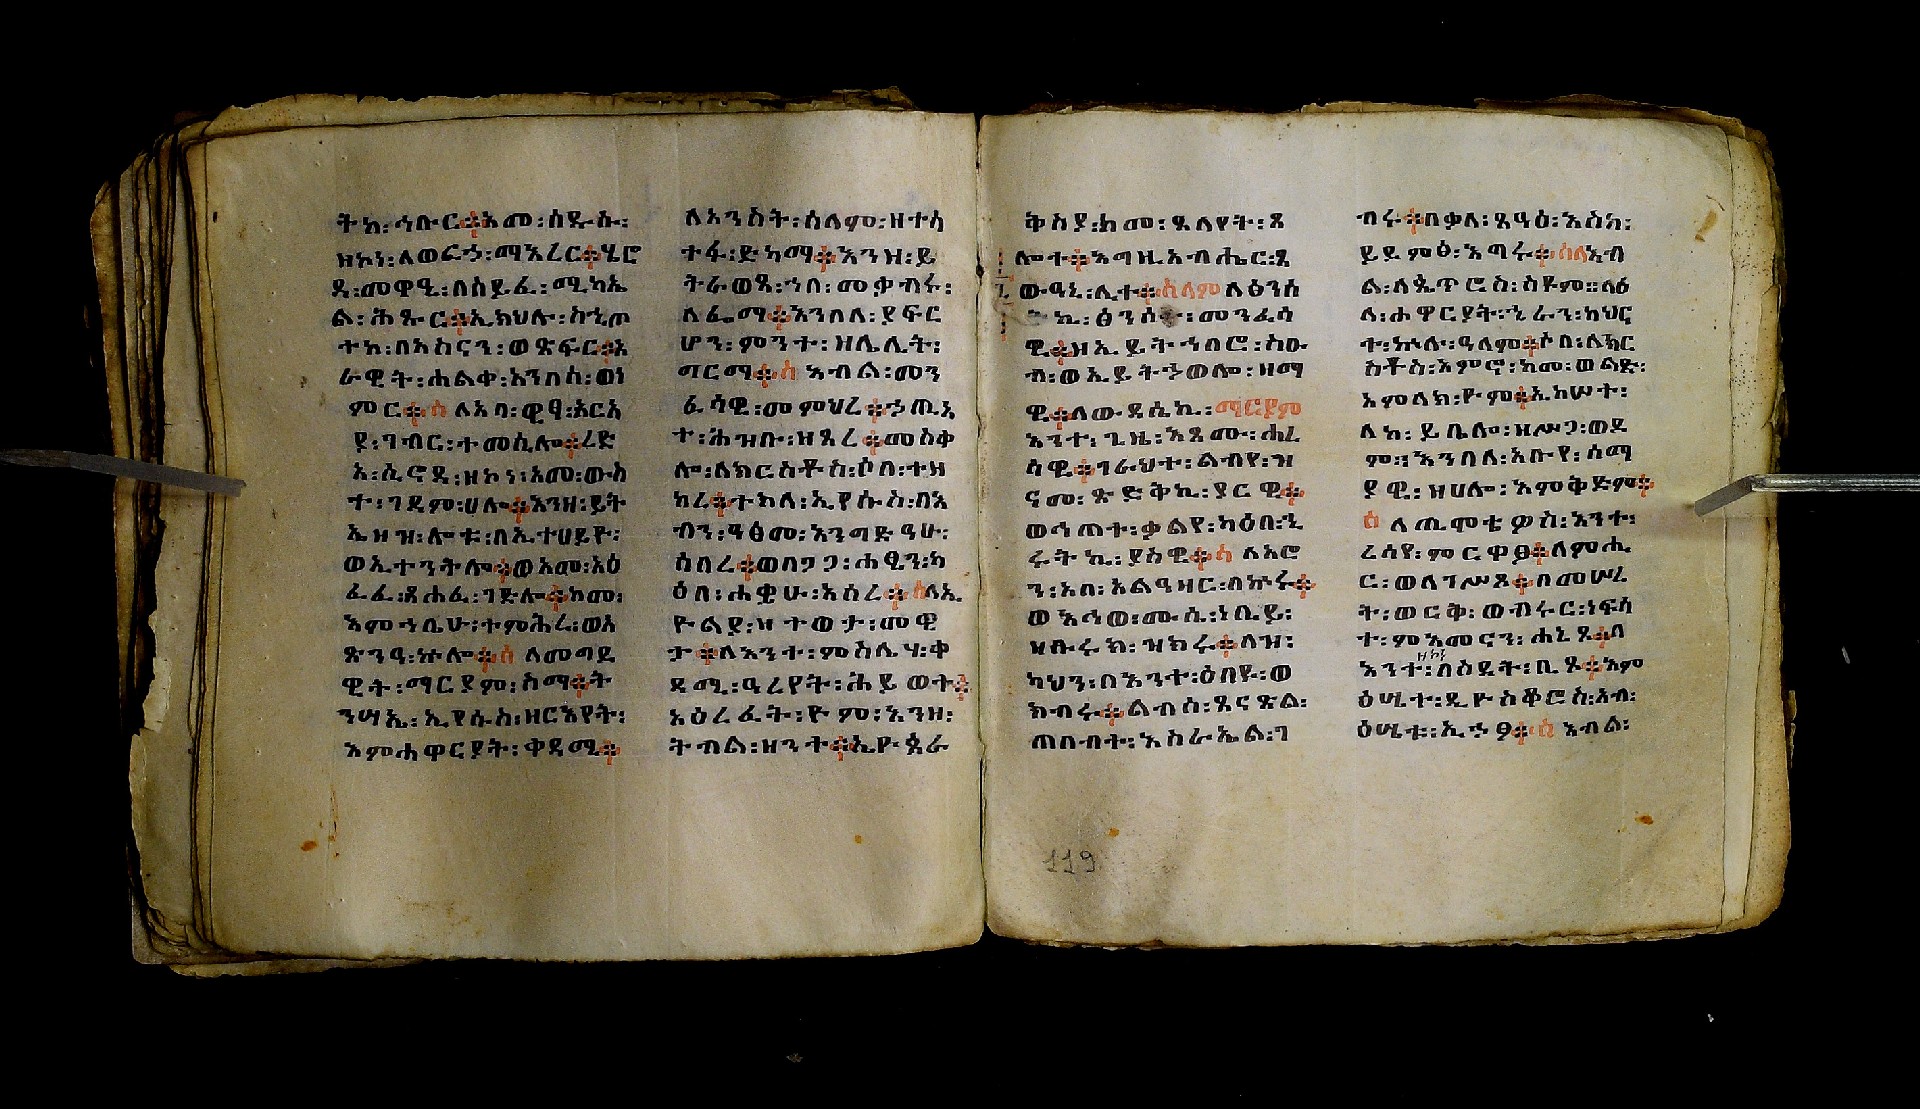 ትከ፡ኅቡር፨አመ፡ሰዱሱ፡
ዘኮነ፡ለወፍኃ፡ማእረር፨ሂሮ
ዳ፡መዋዒ፡በሰይፈ፡ሚካኤ
ል፡ሕጹር፨ኢክህሉ፡ከኒጦ
ተከ፡በአስናን፡ወጽፍር፨አ
ራዊት፡ሐልቀ፡አንበሳ፡ወነ
ምር፨ሰ ለአባ፡ዊፃ፡እርአ
ያ፡ገብር፡ተመሲሎ፨ረድ
አ፡ሲኖዳ፡ዘኮነ፡አመ፡ውስ
ተ፡ገዳም፡ሀሎ፨እንዘ፡ይት
ኤዘዝ፡ሎቱ፡በኢተሀይዮ፡
ወኢተንትሎ፨ወአመ፡አዕ
ፈፈ፡ጸሐፈ፡ገድሎ፨ከመ፡
እምኀቤሁ፡ተምሕረ፡ወአ
ጽንዓ፡ኵሎ፨ሰ ለመግደ
ዊት፡ማርያም፡ስማ፨ት
ንሣኤ፡ኢየሱስ፡ዘርእየት፡
እምሐዋርያት፡ቀዳሚ፨
ለአንስት፡ሰላም፡ዘተሳ
ተፋ፡ድካማ፨እንዝ፡ይ
ትራወጻ፡ኀበ፡መቃብሩ፡
ለፌማ፨እንበለ፡ያፍር
ሆን፡ምንተ፡ዘሌሊት፡
ግርማ፨ሰ እብል፡መን
ፈሳዊ፡መምህረ፨ኃጢአ
ተ፡ሕዝቡ፡ዘጸረ፨መስቀ
ሎ፡ለክርስቶስ፡ሶበ፡ተዘ
ከረ፨ተክለ፡ኢየሱስ፡በአ
ብን፡ዓፅመ፡አንግድዓሁ፡
ሰበረ፨ወበጋጋ፡ሐፂን፡ካ
ዕበ፡ሐቋሁ፡አሰረ፨ሰለኢ
ዮልያ፡ዘተወታ፡መዊ
ታ፨ለእንተ፡ምስሌሃ፡ቀ
ዳሚ፡ዓረየት፡ሕይወተ፨
አዕረፈት፡ዮም፡እንዘ፡
ትብል፡ዘንተ፨ኢዮጴራ
ቅስያ፡ከመ፡ጴለየት፡ጸ
ሎተ፨እግዚአብሔር፡ጼ
ውዓኒ፡ሊተ፨ሰላም ለዕንሰ
ኪ፡ፅንሰ፡መንፈሳ
ዊ፨ዘኢይትኀበሮ፡ስዑ
ብ፡ወኢይትኃወሎ፡ዘማ
ዊ፨ለውዳሴኪ፡ማርያም
እንተ፡ጊዜ፡እጼሙ፡ሐረ
ሳዊ፨ገራህተ፡ልብየ፡ዝ
ናመ፡ጽድቅኪ፡ያርዊ፨
ወኅጠተ፡ቃልየ፡ካዕበ፡ኂ
ሩትኪ፡ያስዊ፨ሰ ለአሮ
ን፡አበ፡አልዓዛር፡በኵሩ፨
ወእኅወ፡ሙሴ፡ነቢይ፡
ዝኩሩክ፡ዝክሩ፨ለዝ፡
ካህን፡በእንተ፡ዕበዩ፡ወ
ክብሩ፨ልብሰ፡ጼና ጽል፡
ጠበብተ፡እስራኤል፡ገ
ብሩ፨በቃለ፡ጼዓዕ፡እስከ፡
ይደምፅ፡አጣሩ፨ሰለእብ
ል፡ለጴጥሮስ፡ስዩም።ለዕ
ለ፡ሐዋርያት፡ኂራን፡ካህር
ተ፡ኵሉ፡ዓለም፨ሶበ፡ለክር
ስቶስ፡አምኖ፡ከመ፡ወልድ፡
አምላክ፡ዮም፨ኢከሠተ፡
ለከ፡ይቤሎ፡ዘሥጋ፡ወደ
ም፡፡እንበለ፡አቡየ፡ሰማ
ያዊ፡ዘሀሎ፡እምቅድም፨
ሰ ለጢሞቴዎስ፡እንተ፡
ረሰየ፡ምርዋፀ፨ለምሒ
ር፡ወለገሥጾ፨በመሠረ
ት፡ወርቅ፡ወብሩር፡ነፍሰ
ተ፡ምእመናን፡ሐኒጾ፨በ
ዘኮነ
እንተ፡በስደት፡ቤጹ፨እም
ዕሤተ፡ዲዮስቆሮስ፡አብ፡
ዕሤቱ፡ኢኃፀ፨ሰ እብል፡
119